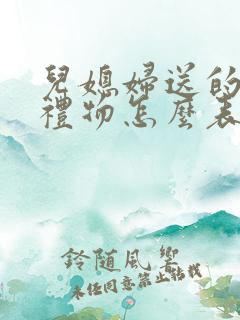 兒媳婦送的
禮物怎麼表
鈴隨風響
未經同意禁止轉載